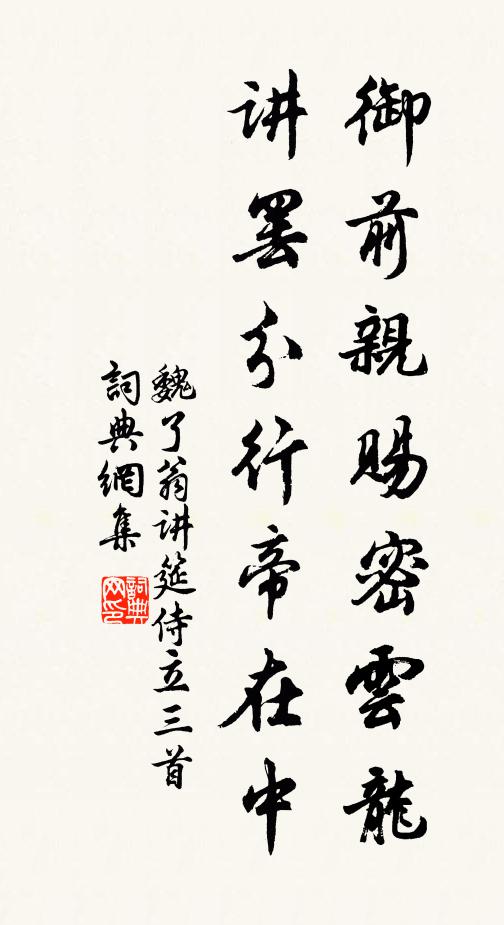 御前親賜密雲龍
讲罢分行帝在中
魏了翁讲筵侍立三首
詞典網集
詞典网印